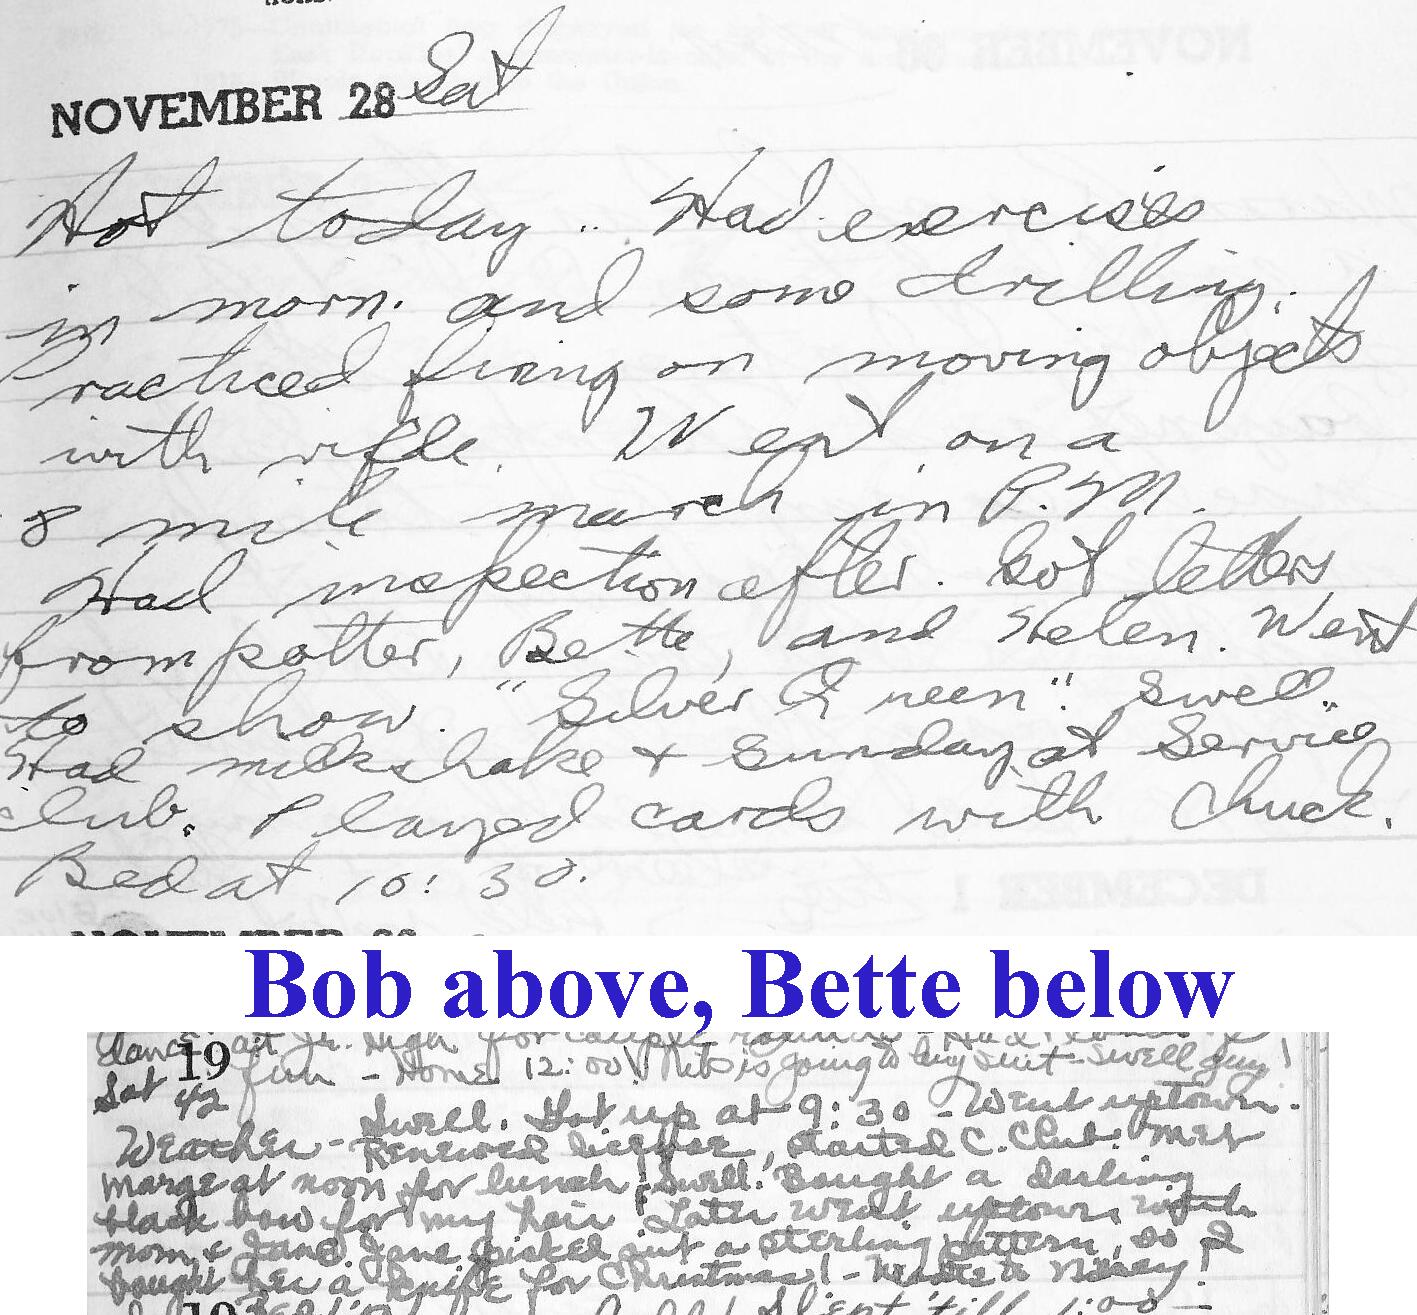 NOVEMBER 28 Sat
Hot today.. Had exercises
in morn. and some drilling.
Practiced firing on moving objects
with rifle. Went on a
8 mile march in P.M.
Had inspection after. Got letters
from potter, Bette, and Helen. Went
to show. "Silver Queen". Swell..
Had milkshake & Sunday at Service
Club. Played cards with Chuck.
Bed at 10:30.
Bob above, Bette below
dance at Jr. High for couple
19 fun - Home 12:00 is going to buy suit - swell guy!
Sat 42 Swell. Got up at 9:30 - Went uptown.
Weather - Renewed license, started C. Club. Met
Marge at noon for lunch. Swell. Bought a darling
black bow for my hair. Later went uptown with
mom & Jane. Jane picked out a sterling pattern, so I
bought her a knife for Christmas! - Wrote to Nancy!
19 'till 1:00 -